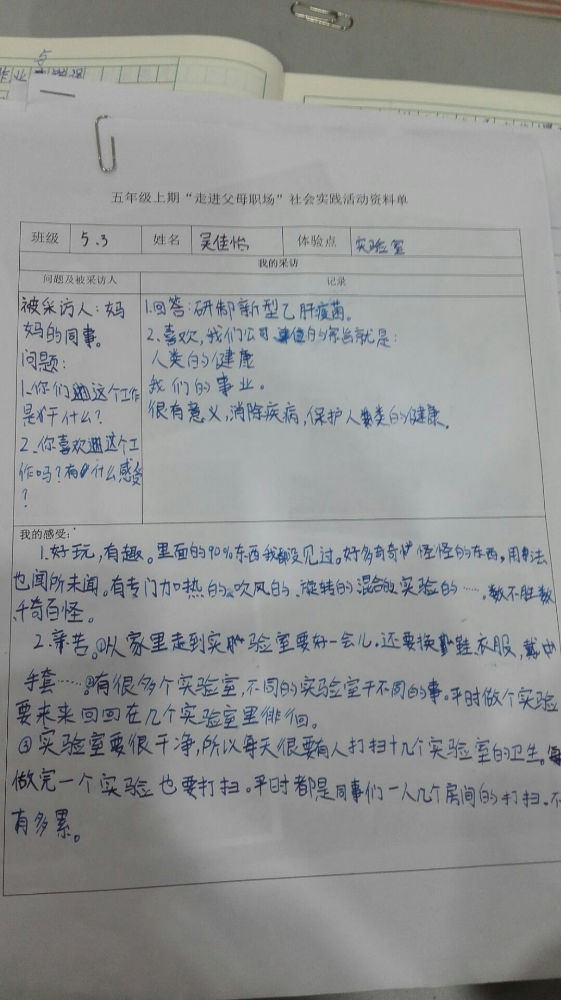 作业
五年级上期“走进父母职场”社会实践活动资料单
班级 5.3 姓名 吴佳怡 体验点 实验室
我的采访
问题及被采访人 记录
被采访人：妈
妈的同事。
问题：
1.你们这个工作
是干什么？
2.你喜欢这个工
作吗？有什么感受
？
1.回答：研制新型乙肝疫苗。
2.喜欢，我们公司的宗旨就是：
人类的健康
我们的事业。
很有意义，消除疾病，保护人类的健康。
我的感受：
1.好玩，有趣。里面的90%东西我都没见过。好多奇奇怪怪的东西，用法
也闻所未闻。有专门加热的、吹风的、旋转的、混合的、实验的……，数不胜数
，千奇百怪。
2.辛苦。①从家里走到实验室要好一会儿，还要换鞋衣服，戴
手套……②有很多个实验室，不同的实验室干不同的事。平时做个实验
要来来回回在几个实验室里徘徊。
③实验室要很干净，所以每天很要有人打扫十几个实验室的卫生。每
做完一个实验也要打扫。平时都是同事们一人几个房间的打扫。
有多累。